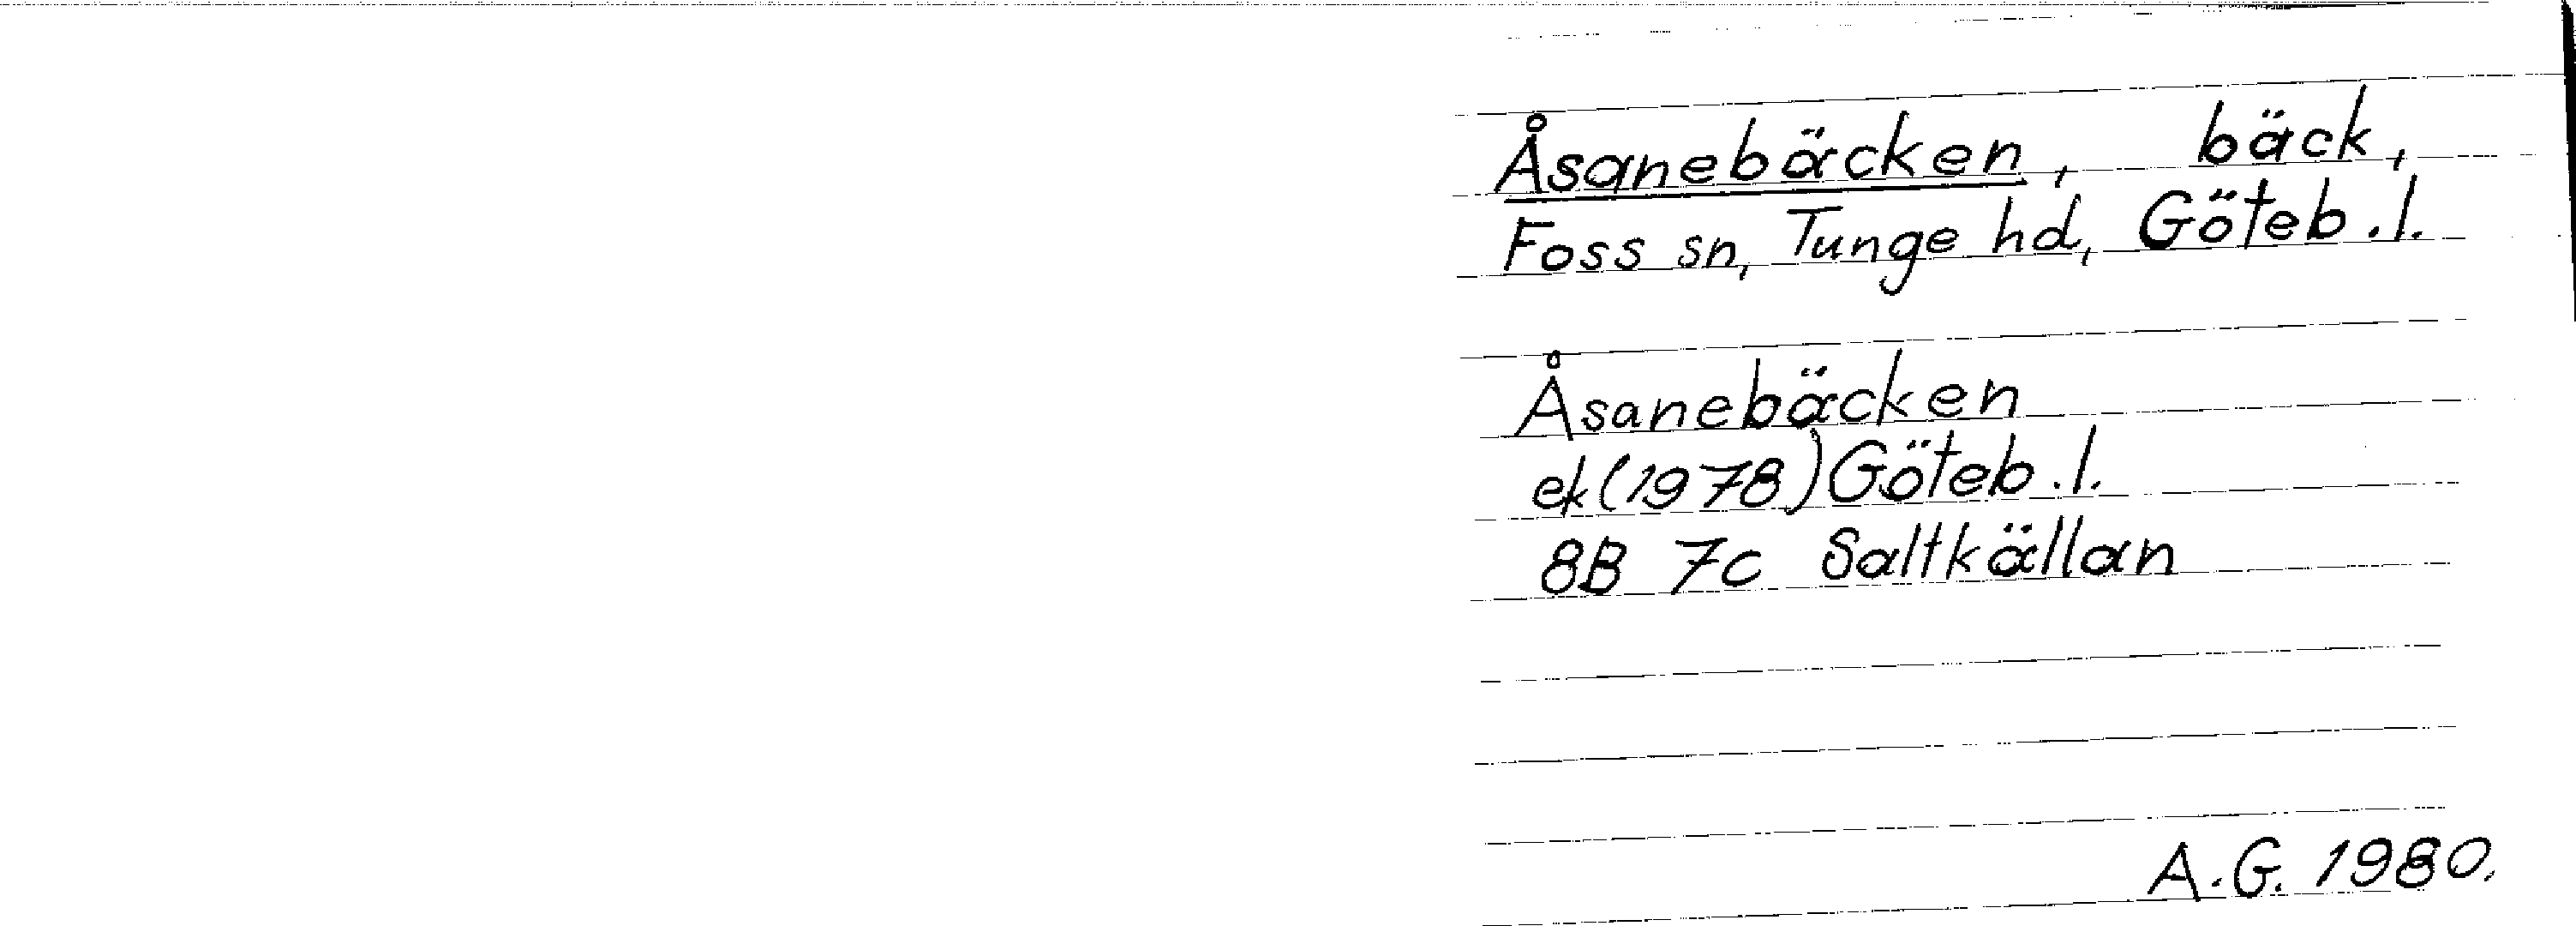 Åsanebäcken, bäck,
Foss sn, Tunge hd, Göteb.l.
Åsanebäcken
ek(1978)Göteb.l.
8B 7c Saltkällan
A.G. 1980.